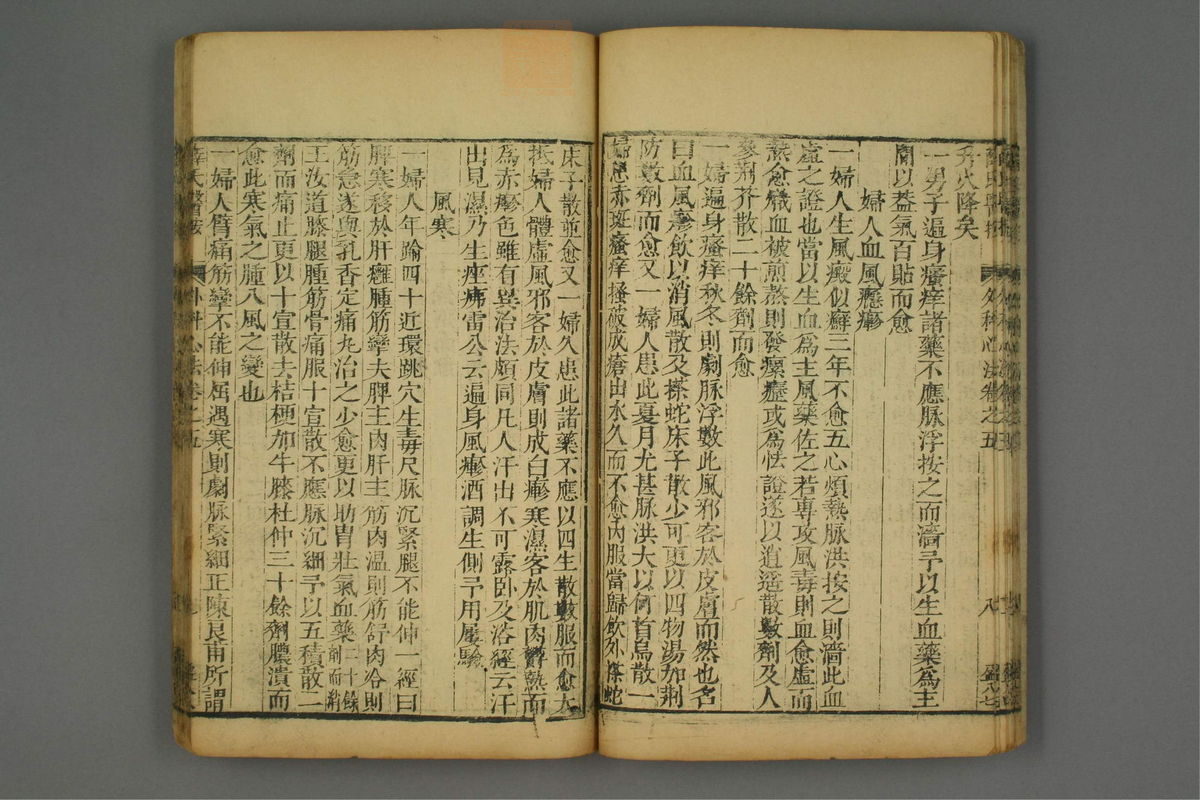 升火降矣
一男子遍身瘙痒諸藥不應脉浮按之而濇予以生血藥為主
間以益氣百貼而愈
婦人血風癮疹
一婦人生風癜似癬三年不愈五心煩熱脉洪按之則濇此血
虛之證也當以生血為主風藥佐之若專攻風毒則血愈虛而
熱愈熾血被煎熬則發瘰癧或為怯證遂以逍遥散數劑及人
參荊芥散二十餘劑而愈
一婦遍身瘙痒秋冬則劇脉浮數此風邪客於皮膚而然也名
曰血風疹飲以消風散及搽蛇床子散少可更以四物湯加荆
防數劑而愈又一婦人患此夏月尤甚脉洪大以何首烏散一
婦患赤斑瘙痒搔破成瘡出水久而不愈内服當歸飲外搽蛇
床子散並愈又一婦久患此諸藥不應以四生散數服而愈大
抵婦人體虛風邪客於皮膚則成白疹寒濕客於肌肉鬱熱而
為赤疹色雖有異治法頗同凡人汗出不可露卧及浴經云汗
出見濕乃生痤疿雷公云遍身風疹酒調生側予用屢驗
風寒
一婦人年踰四十近環跳穴生毒尺脉沉緊腿不能伸一經曰
脾寒移於肝癰腫筋攣夫脾主肉肝主筋肉温則筋舒肉冷則
筋急遂與乳香定痛丸治之少愈更以助胃壯氣血藥二十餘劑而消
王汝道膝腿腫筋骨痛服十宣散不應脉沉細予以五積散二
劑而痛止更以十宣散去桔梗加牛膝杜仲三十餘劑膿潰而
愈此寒氣之腫八風之變也
一婦人臂痛筋攣不能伸屈遇寒則劇脉緊細正陳良甫所謂
薛氏醫按
外科心法卷之五
八